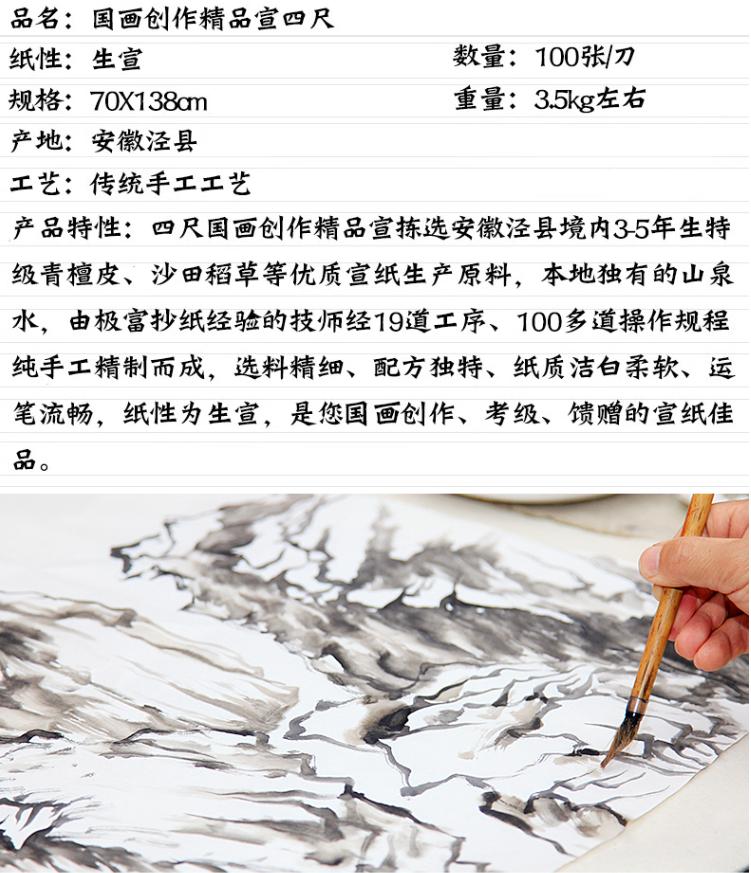 品名：国画创作精品宣四尺
纸性：生宣 数量：100张/刀
规格：70X138cm 重量：3.5kg左右
产地：安徽泾县
工艺：传统手工工艺
产品特性：四尺国画创作精品宣拣选安徽泾县境内3-5年生特
级青檀皮、沙田稻草等优质宣纸生产原料，本地独有的山泉
水，由极富抄纸经验的技师经19道工序、100多道操作规程
纯手工精制而成，选料精细、配方独特、纸质洁白柔软、运
笔流畅，纸性为生宣，是您国画创作、考级、馈赠的宣纸佳
品。